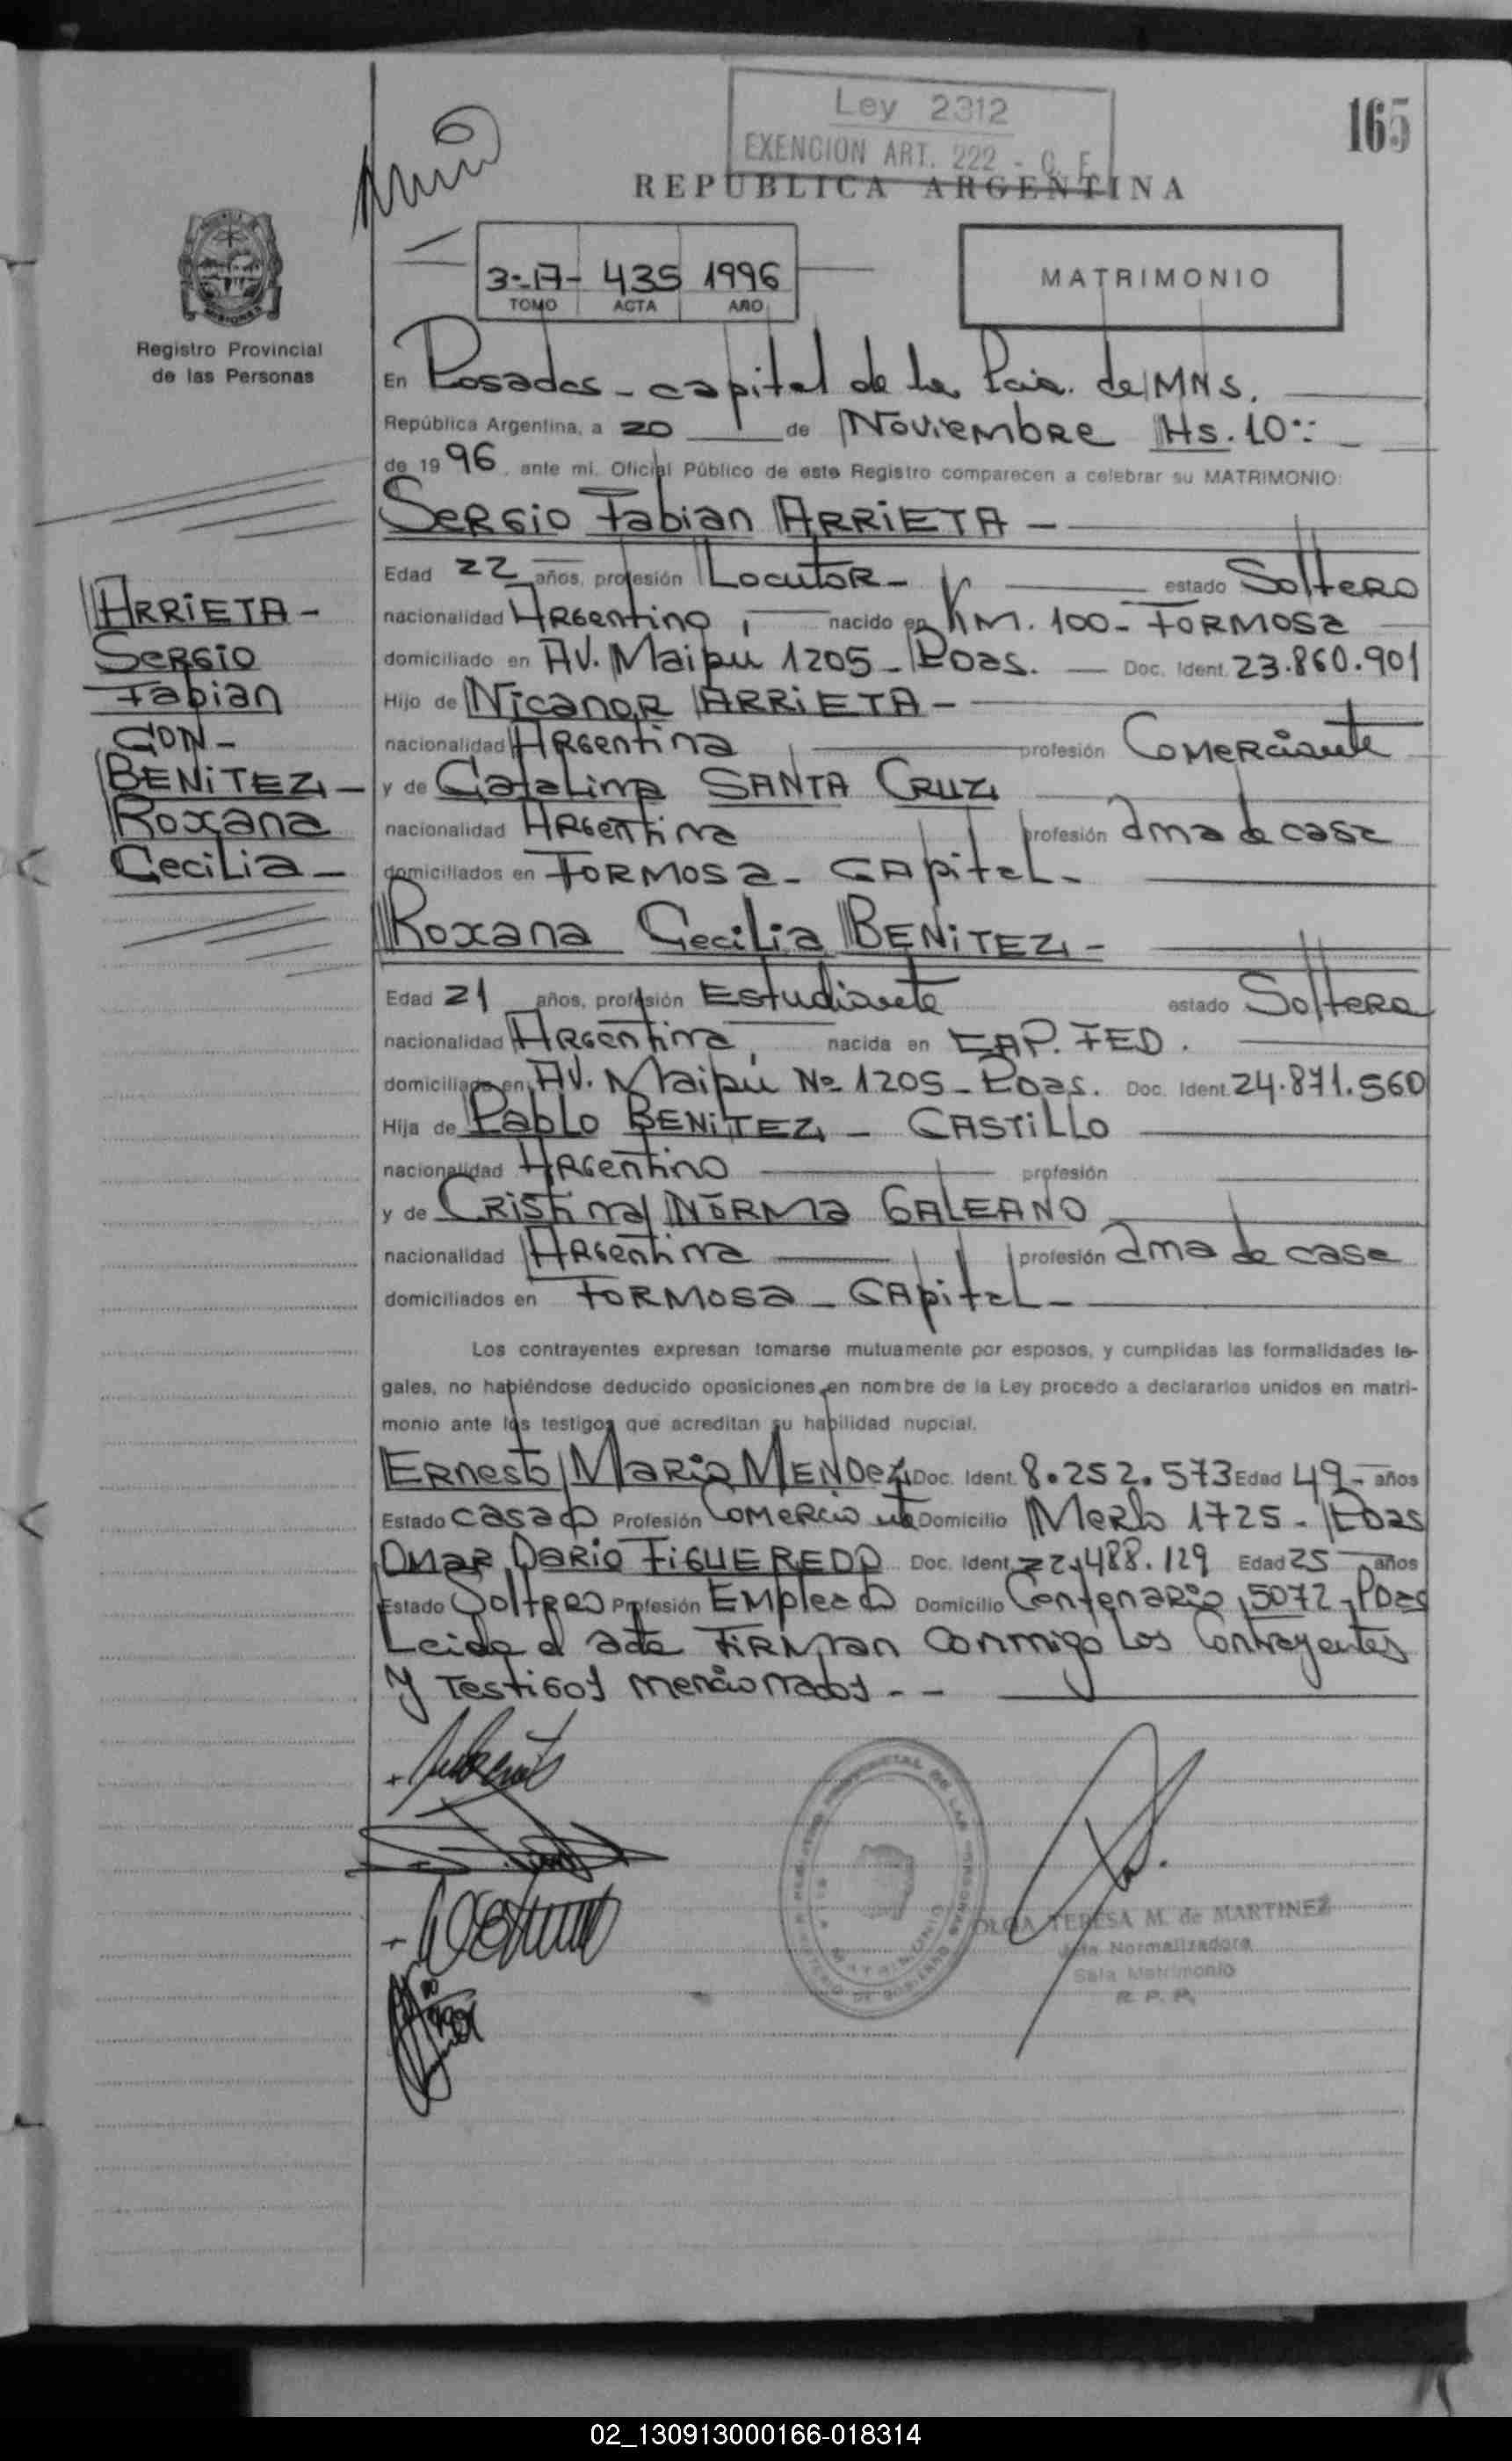 Ley 2312
EXENCION ART. 222 - C. F.
165
REPUBLICA ARGENTINA
3-17- 435 1996
TOMO ACTA AÑO
MATRIMONIO
Registro Provincial
de las Personas
En Posadas - capital de la Pcia. de MNS.
República Argentina, a 20 de Noviembre Hs. 10:
de 1996, ante mi, Oficial Público de este Registro comparecen a celebrar su MATRIMONIO:
Sergio Fabian ARRIETA -
Edad 22 años, profesión Locutor - estado Soltero
nacionalidad Argentino, nacido en KM. 100 - FORMOSA
domiciliado en AV. Maipú 1205 - Pdas. Doc. Ident. 23.860.901
Hijo de Nicanor ARRIETA -
nacionalidad Argentina profesión Comerciante
y de Catalina SANTA CRUZ
nacionalidad Argentina profesión ama de casa
domiciliados en FORMOSA - CApital -
ARRIETA -
Sergio
Fabian
CON -
BENITEZ -
Roxana
Cecilia -
Roxana Cecilia BENITEZ -
Edad 21 años, profesión Estudiante estado Soltera
nacionalidad Argentina, nacida en CAP. FED.
domiciliada en AV. Maipú Nº 1205 - Pdas. Doc. Ident. 24.871.560
Hija de Pablo BENITEZ - CASTILLO
nacionalidad Argentino profesión
y de Cristina NORMA GALEANO
nacionalidad Argentina profesión ama de casa
domiciliados en FORMOSA - CApital -
Los contrayentes expresan tomarse mutuamente por esposos, y cumplidas las formalidades le-
gales, no habiéndose deducido oposiciones en nombre de la Ley procedo a declararlos unidos en matri-
monio ante los testigos que acreditan su habilidad nupcial.
Ernesto Mario MENDEZ Doc. Ident. 8.252.573 Edad 49 - años
Estado casado Profesión Comerciante Domicilio Merlo 1725 - Pdas
OMAR DARIO FIGUEREDO Doc. Ident. 22.488.129 Edad 25 años
Estado Soltero Profesión Empleado Domicilio Centenario 5072 - Pdas
Leida el acta FIRMAN conmigo los Contrayentes
y Testigos mencionados - -
MATRIMONIO
OLGA TERESA M. de MARTINEZ
Jefa Normalizadora
Sala Matrimonio
R. P. P.
02_130913000166-018314